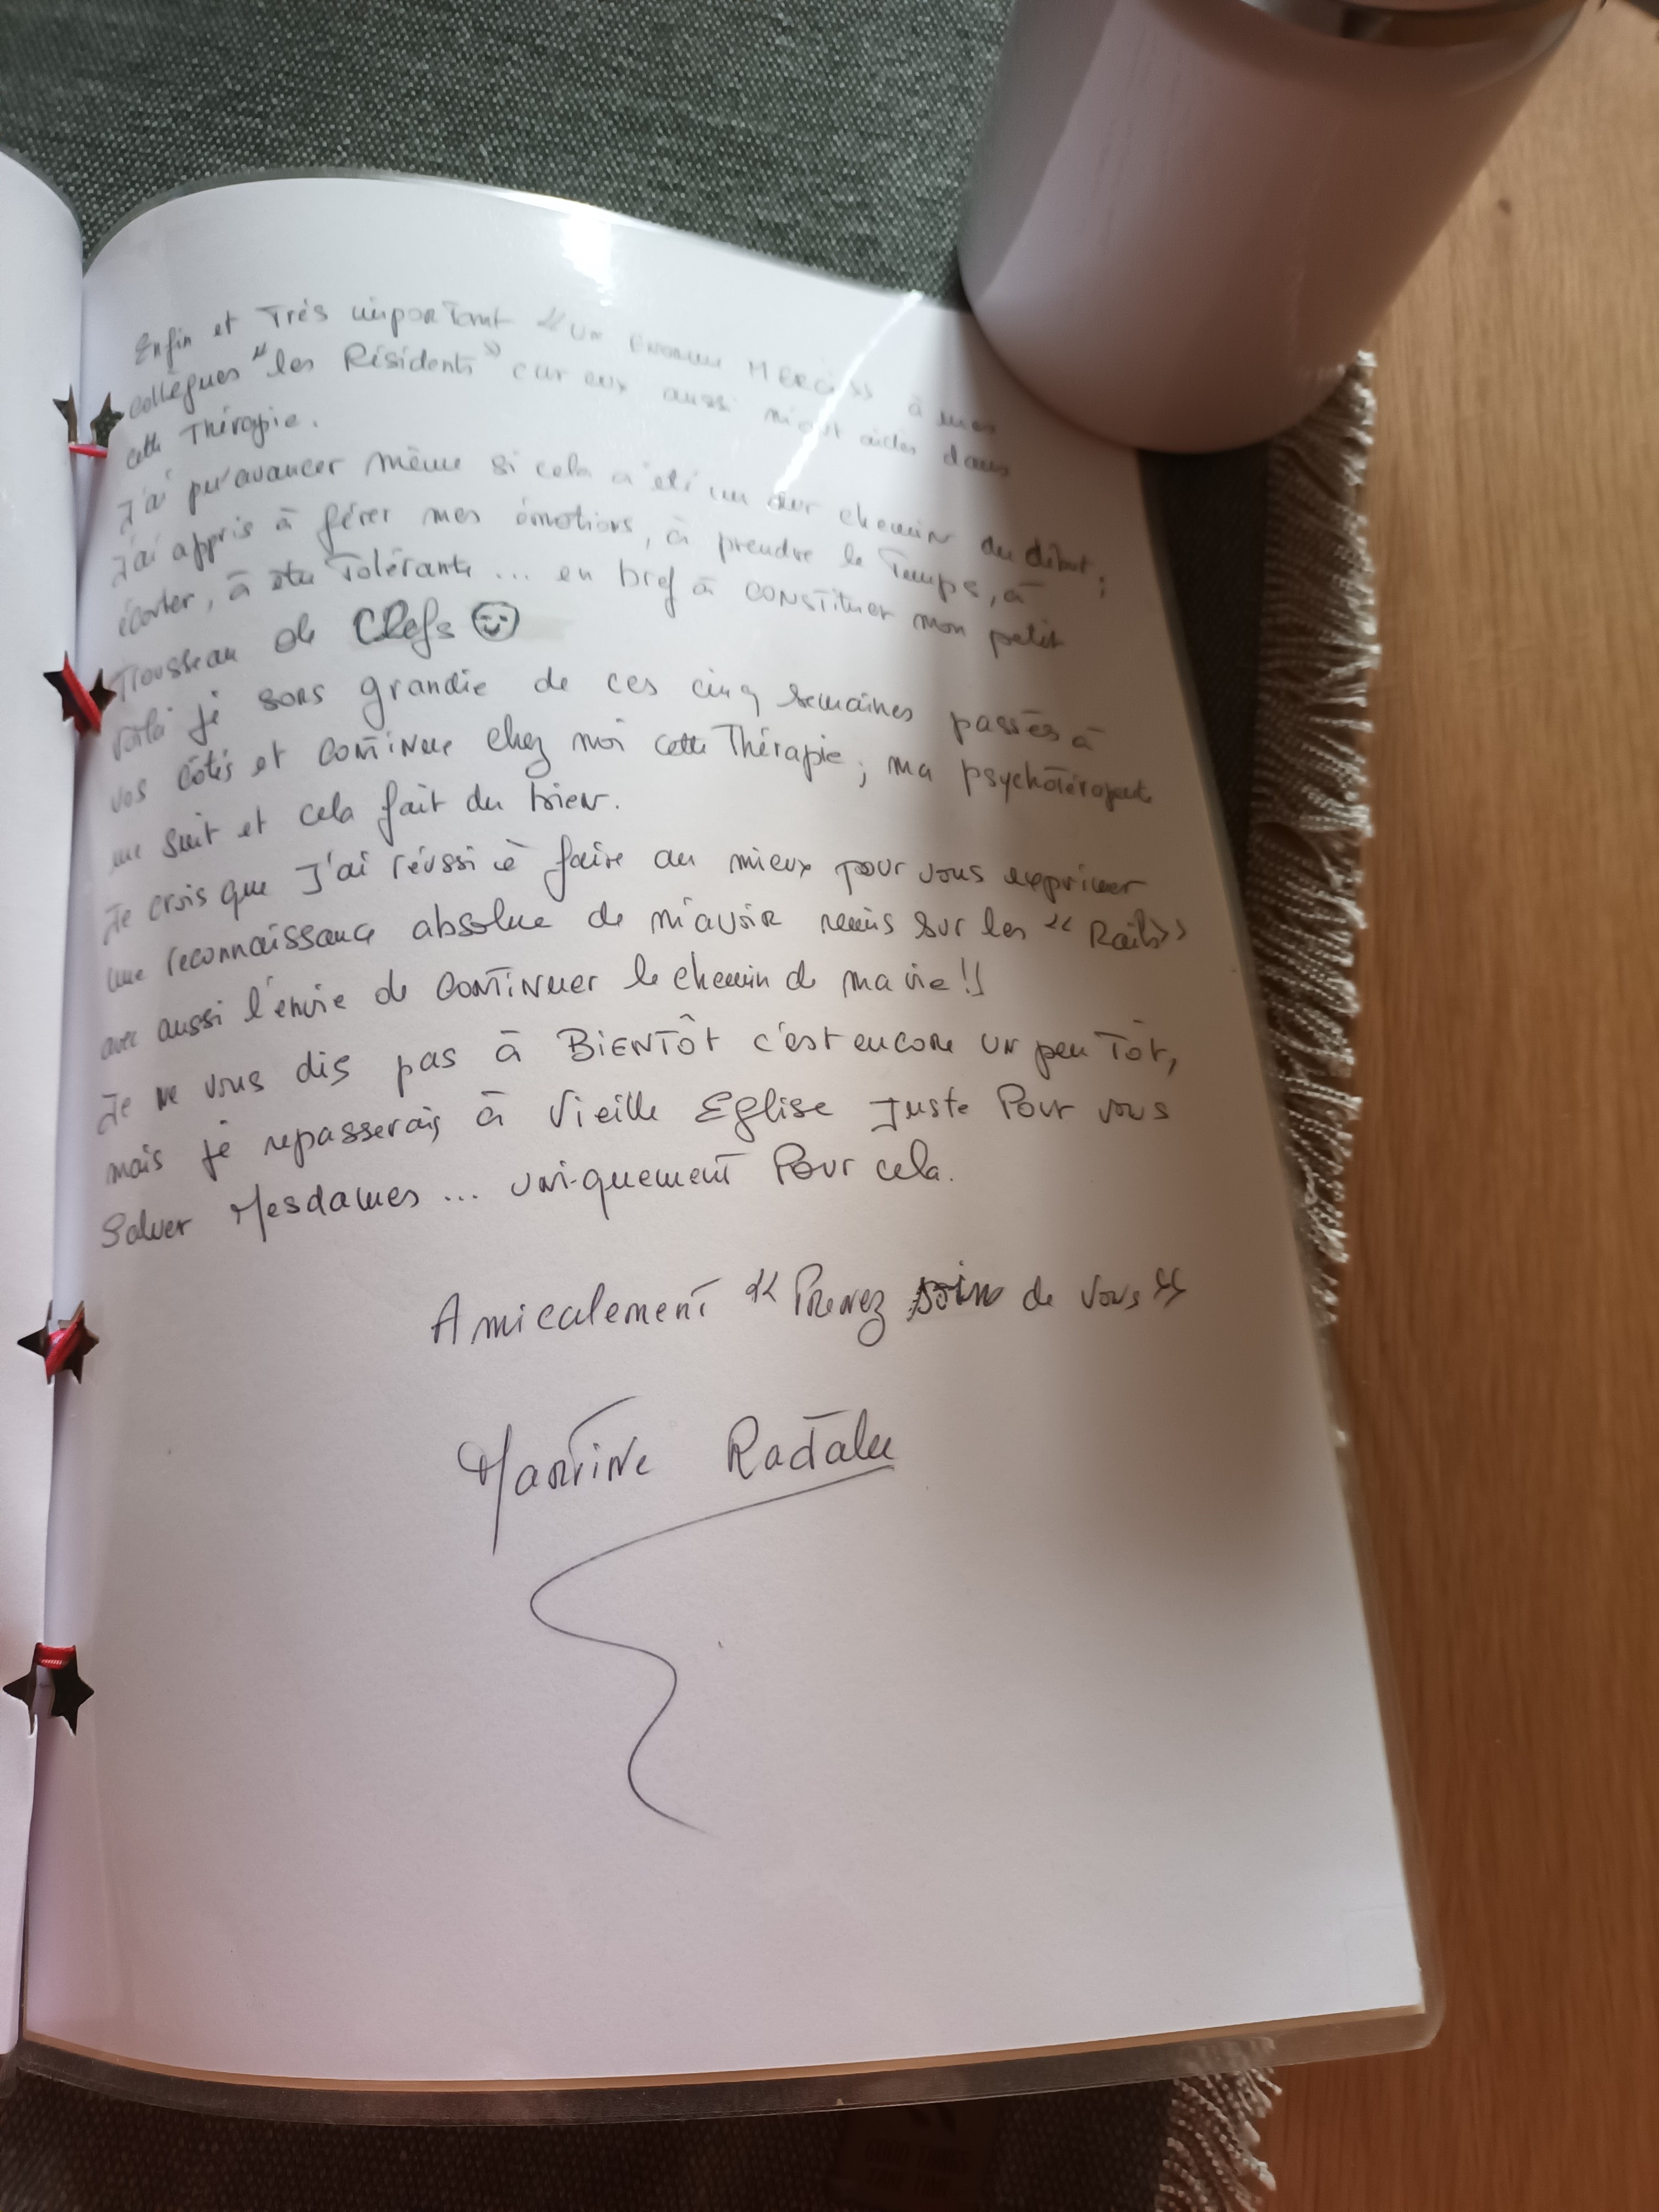 Enfin et Très important « UN ENORME MERCI » à mes
collègues "les Résidents" car eux aussi m'ont aidés dans
cette Thérapie.
J'ai pu avancer même si cela a été un dur chemin au début ;
J'ai appris à gérer mes émotions, à prendre le Temps, à
écouter, à être Tolérante ... en bref à CONSTITUER mon petit
Trousseau de Clefs
Voilà je sors grandie de ces cinq semaines passées à
vos côtés et CONTINUE chez moi cette Thérapie ; ma psychotérapeute
me suit et cela fait du bien.
Je crois que J'ai réussi à faire au mieux pour vous exprimer
une reconnaissance absolue de m'avoir remis sur les « Rails »
avec aussi l'envie de CONTINUER le chemin de ma vie !!
Je ne vous dis pas à BIENTÔT c'est encore un peu Tôt,
mais je repasserais à Vieille Eglise Juste Pour vous
Saluer Mesdames ... uniquement Pour cela.
Amicalement « Prenez soin de Vous »
Martine